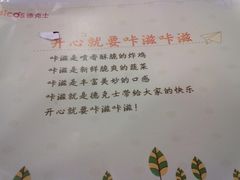 dicos德克士
开心就要咔滋咔滋
咔滋是喷香酥脆的炸鸡
咔滋是新鲜脆爽的蔬菜
咔滋是丰富美妙的口感
咔滋就是德克士带给大家的快乐
开心就要咔滋咔滋！